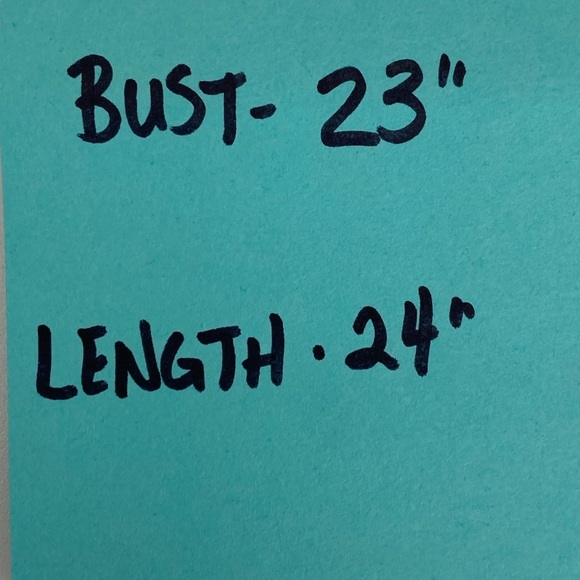 BUST- 23"
LENGTH · 24"